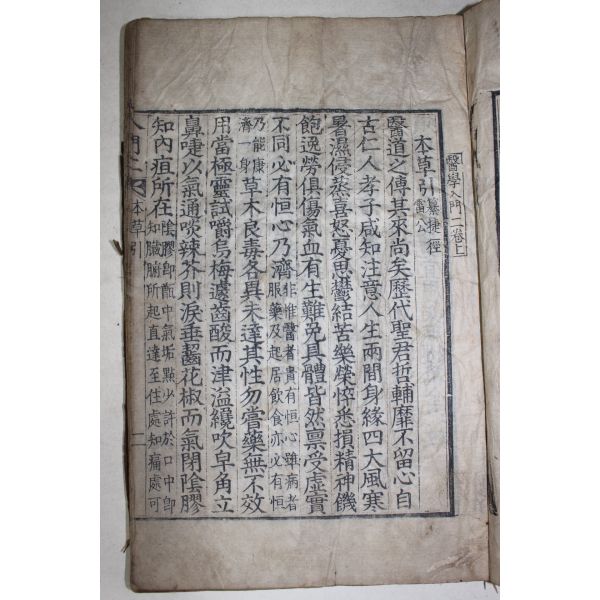 醫學入門二卷上
本草引 纂捷徑 雷公
醫道之傳其來尚矣歷代聖君哲輔靡不留心自
古仁人孝子咸知注意人生兩間身緣四大風寒
暑濕侵蒸喜怒憂思鬱結苦樂榮悴悉損精神饑
飽逸勞俱傷氣血有生難免具體皆然禀受虛實
不同必有恒心乃濟 非惟醫者貴有恒心雖病者 服藥及起居飮食亦必有恒
乃能康 濟一身 草木良毒各異未達其性勿嘗藥無不效
用當極靈試嚼烏梅遽齒酸而津溢纔吹皁角立
鼻嚏以氣通啖辣芥則淚垂齧花椒而氣閉陰膠
知內疽所在 陰膠卽甑中氣垢點少許於口中卽 知臟腑所起直達至住處知痛處可
入門二 本草引 一